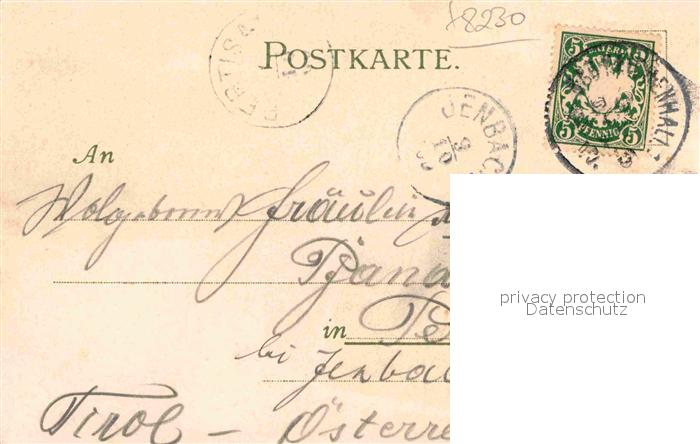 x8230
POSTKARTE.
PERTISA
JENBAC
9
10
BAYERN
5 5
5 PFENNIG 5
An
Wolgeboren Fräulein
in Pe
bei Jenbac
Tirol - Österre
privacy protection
Datenschutz